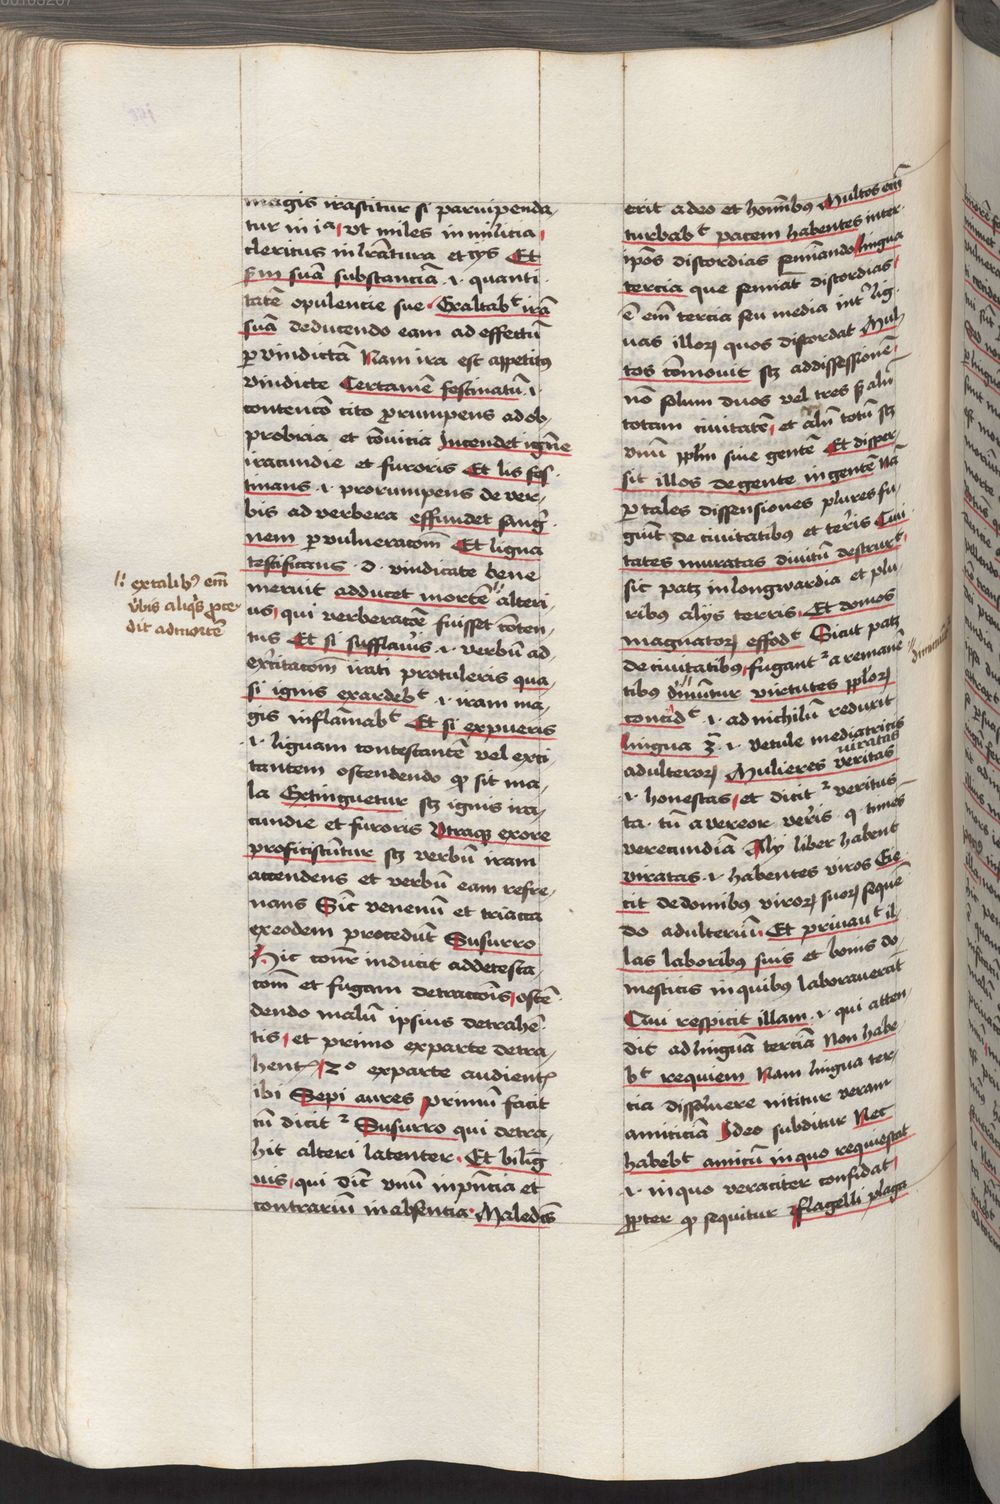 magis irascitur si parvipenda-
tur in ia, vt miles in milicia,
clericus in lrātura et cys Et
scdm suā substanciā .i. quanti
tatē opulencie sue. Exaltabt irā
suā deducendo eam ad effectū
p vindictā Nam ira est appetitus
vindicte Certamē festinatū .i.
contencō cito prumpens ad ob
probria et cōvicia Incendet igne
iracundie et furoris Et lis fes
tinans .i. prorumpens de ver-
bis ad verbera effundet sangi
nem p vulneracōm Et ligua
testificans .d. vindicate bene
meruit adducet mortē alteri-
us, qui verberacōe fuisset cōten-
tus Et si sufflavis .i. verbū ad
excitacōm irati protuleris qua
si ignis exardebt .i. iram ma-
gis inflāmabt Et si expueris
.i. liguam contestantē vel exci
tantem ostendendo qp sit ma-
la Extinguetur scz ignis ira-
cundie et furoris Vtraqz exore
proficiscūtur scz verbū iram
accendens et verbū eam refre-
nans Sic venenū et triaca
ex eodem procedūt Susurro
Hic conr inducit addetesta-
tōm et fugam detraccōis, ostē
dendo malū ipsius detrahē
tis, et primo ex parte detra-
hent, 2o ex parte audient
ibi Sepi aures primū facit
tū dicit Susurro qui detra-
hit alteri latenter. Et biling
uis, qui dic vnū in pntia et
contrariū in absentia. Maledcs
// ex talibus em
vbis aliqs pce-
dit ad mortē
erit a deo et hominbus Multos em
turbabt pacem habentes inter
ipos discordias seminando Lingua
tercia que seminat discordias,
ē em tercia seu media int lig-
uas illorz quos discordat Mul
tos cōmouit scz ad dissessionē,
nō solum duos vel tres s alii
totam ciuitatē, et alii totū scz
vnū pplm siue gentē Et disper
sit illos de gente in gentē nā
p tales dissensiones plures fu-
giūt de ciuitatibus et terris Ciui
tates muratas diuitū destruxt,
sic patz in longwardia et plu-
ribus alys terris. Et domos
magnatorz effodt Sicut patz
de ciuitatibus, fugant a remanē
tibus dimutur virtutes pplorz
concidt .i. ad nichilū reduxit
lingua 3a .i. vetule mediatricis
adulterorz Mulieres veritas
viratas
.i. honestas, et dicit veritus
ta tū a vereor veris. q times
verecundiā Aly liber habent
viratas .i. habentes viros Eie
cit de domibus virorz suorz sequē
do adulteriū. Et priuaut il
las laboribus suis et bonis do
mesticis in quibus laborauerāt
Qui respicit illam .i. qui atten
dit ad linguā terciā Non habe
bt requiem Nam lingua ter-
cia dissoluere nititur veram
amiticiā Ideo subditur Nec
habebt amicū in quo requiescat
.i. in quo veraciter confidat,
ppter qp sequitur Flagelli plaga